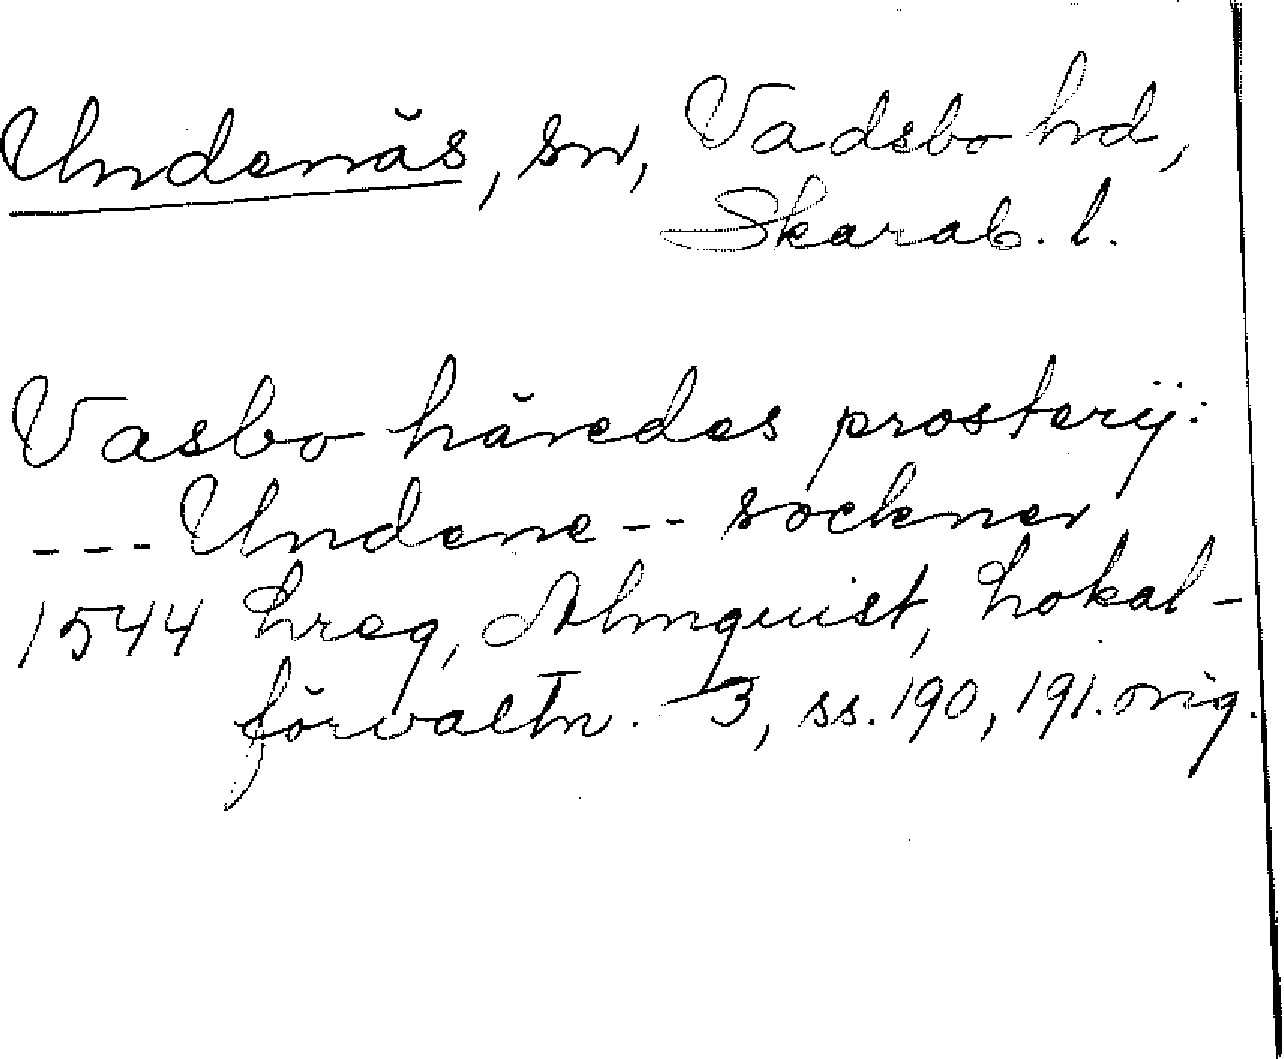 Undenäs, sn, Vadsbo hd,
Skarab. l.
Vasbo häredes prosterij:
--- Undene -- sockner
1544 Lreg, Almquist, Lokal-
förvaltn. 3, ss. 190, 191. orig.